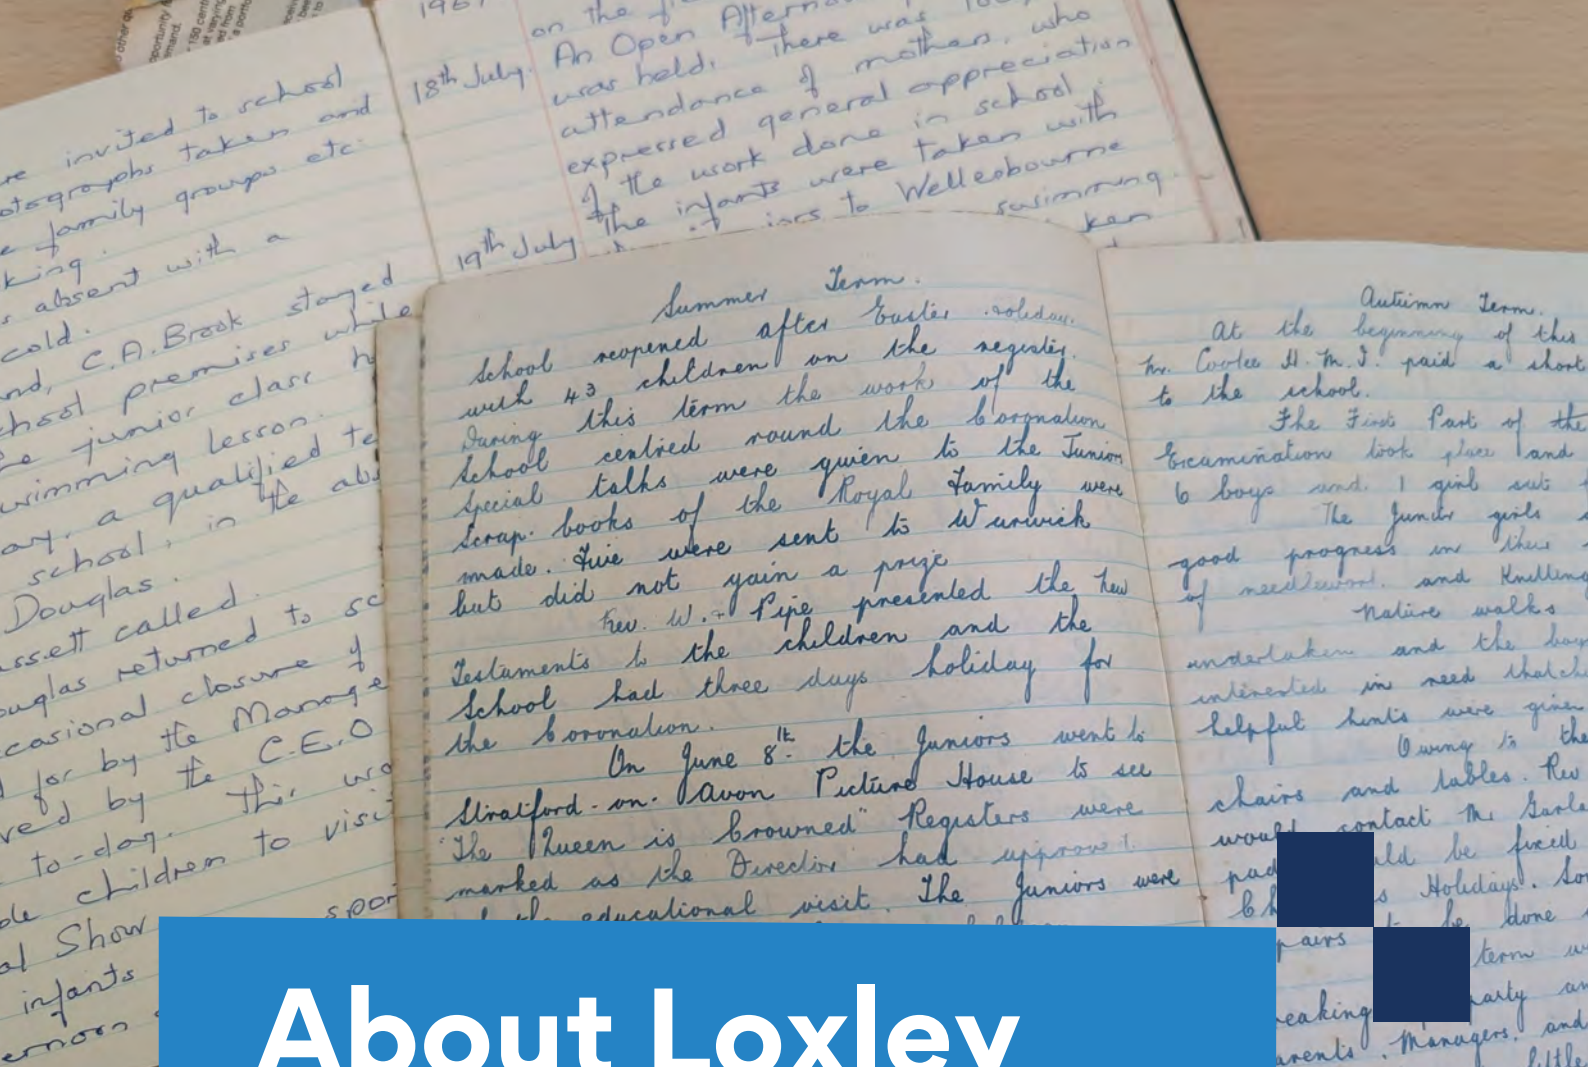 other qu
opportunity &
demand.
150 cent
at varying
ed from
a portfo
re invited to school
otographs taken and
e family groups etc.
king.
s absent with a
cold.
nd, C.A. Brook stayed
chool premises while
he junior class h
wimming lesson.
ay, a qualified te
school, in the abs
Douglas.
ssett called.
ouglas returned to sc
ccasional closure of
d for by the Manage
ved by the C.E.O
to-day. This wo
le children to visit
al Show spor
infants
ernoon
on the
18th July. An Open Afternoon
was held. There was 100%
attendance of mothers, who
expressed general appreciation
of the work done in school.
19th July The infants were taken with
juniors to Wellesbourne
swimming.
Summer Term.
School reopened after Easter holiday.
with 43 children on the register.
During this term the work of the
School centred round the Coronation
Special talks were given to the Juniors
Scrap-books of the Royal Family were
made. Five were sent to Warwick
but did not gain a prize
Rev. W. Pipe presented the New
Testaments to the children and the
School had three days holiday for
the Coronation.
On June 8th. the Juniors went to
Stratford-on-Avon Picture House to see
"The Queen is Crowned" Registers were
marked as the Director had approved
the educational visit. The Juniors were
Autumn Term.
At the beginning of this
Mr. H.M.I. paid a short
to the school.
The First Part of the
Examination took place and
6 boys and 1 girl sat
The Junior girls
good progress in their
of needlework and Knitting
Nature walks
undertaken and the boys
interested in reed thatch
helpful hints were given
Owing to the
chairs and tables. Rev
would contact Mr Garle
pad ld be fixed
Ch s Holidays. So
pairs to be done
term w
eaking party an
arents. Managers, and
little
About Loxley